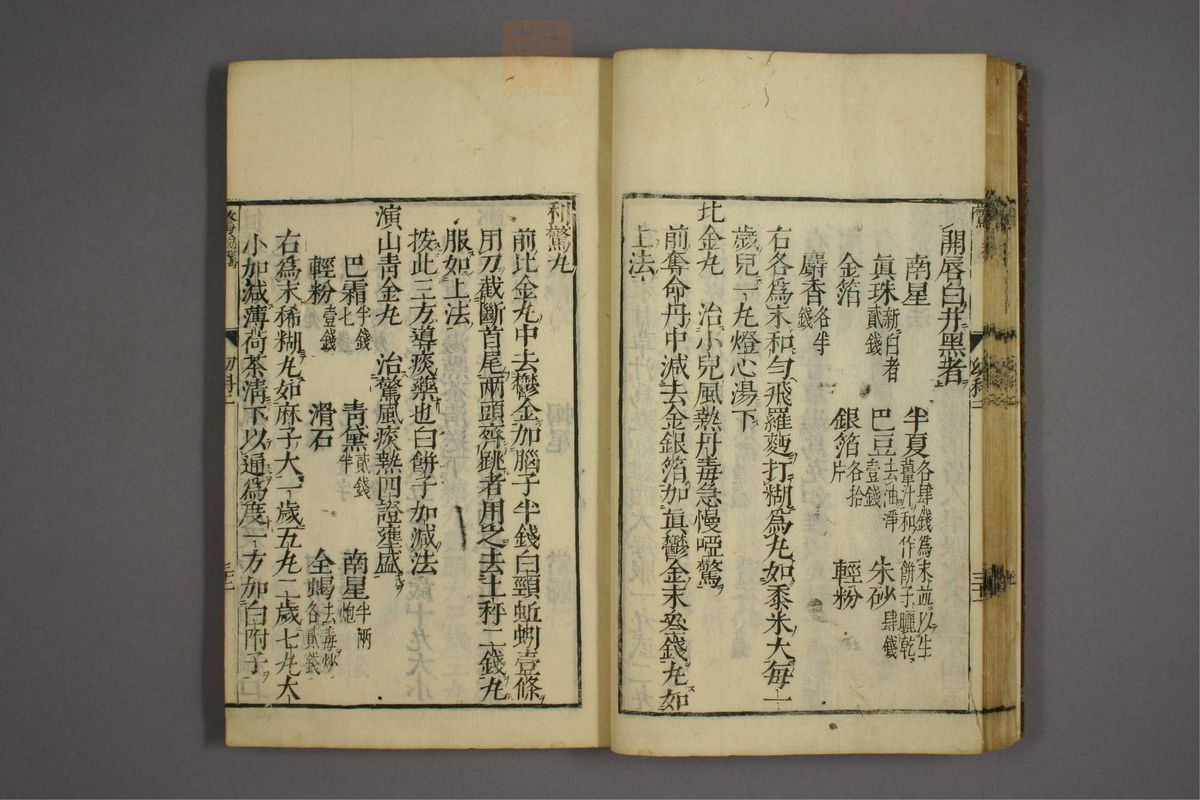 開唇白并黑者
南星 半夏各肆錢爲末並以生薑汁和作餅子曬乾
眞珠新白者貳錢 巴豆去油淨壹錢 朱砂肆錢
金箔 銀箔各拾片 輕粉
麝香各半錢
右各爲末和勻飛羅麪打糊爲丸如黍米大每一
歲兒一丸燈心湯下
比金丸 治小兒風熱丹毒急慢啞驚
前奪命丹中減去金銀箔加眞鬱金末叄錢丸如
上法
利驚丸
前比金丸中去鬱金加腦子半錢白頸蚯蚓壹條
用刀截斷首尾兩頭齊跳者用之去土秤二錢丸
服如上法
按此三方導痰藥也白餅子加減法
演山青金丸 治驚風痰熱四證壅盛
巴霜半錢七 青黛貳錢半 南星半兩炮
輕粉壹錢 滑石 全蝎去毒炒各貳錢
右爲末稀糊丸如麻子大一歲五丸二歲七丸大
小加減薄荷茶清下以通爲度一方加白附子